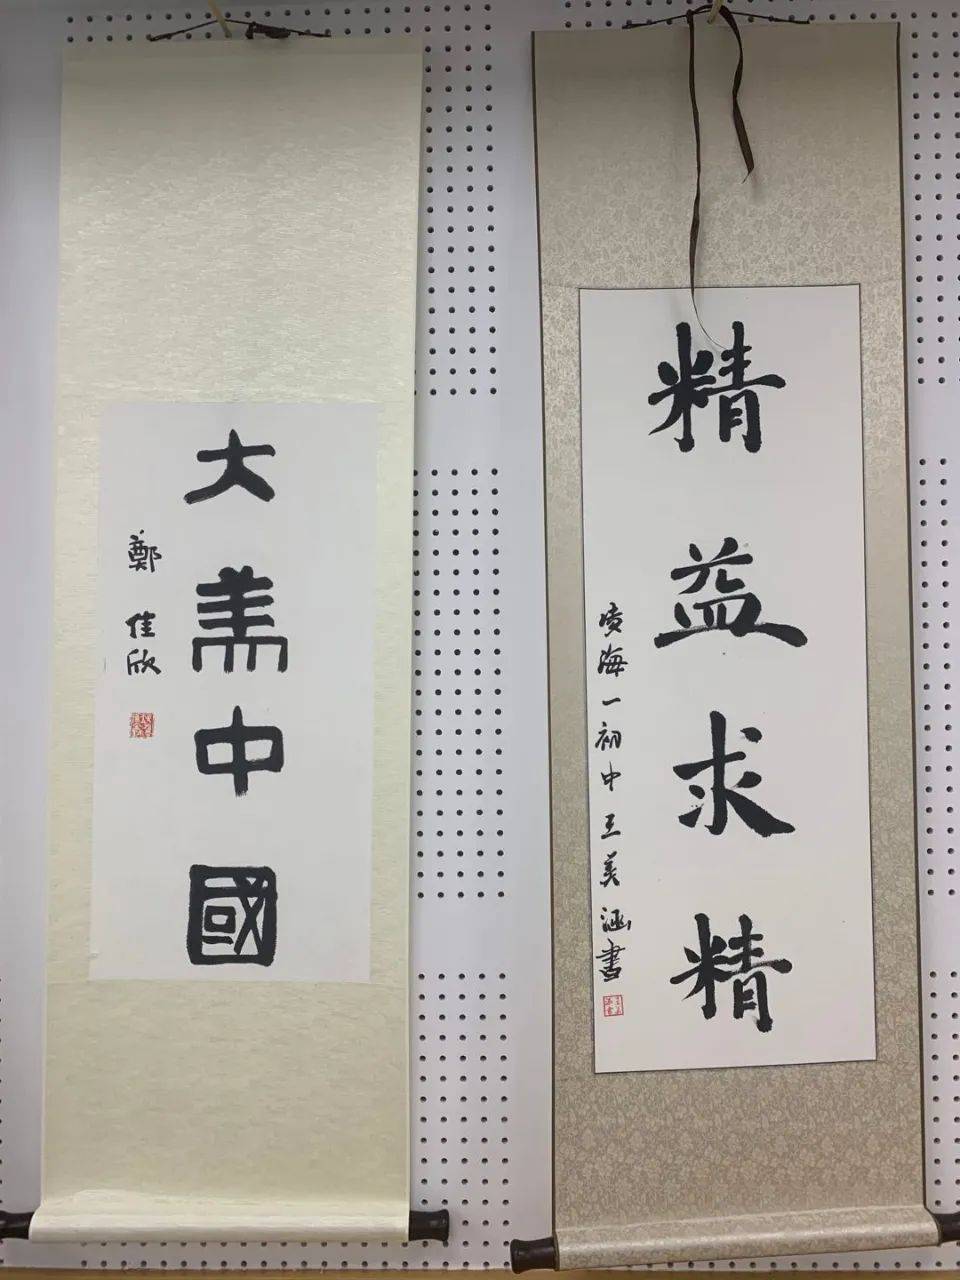 大美中國
鄭佳欣
精益求精
凌海一初中王美涵書